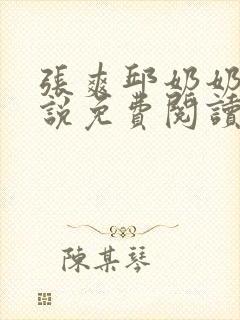 張爽邱奶奶
說免費閱讀
陳某琴